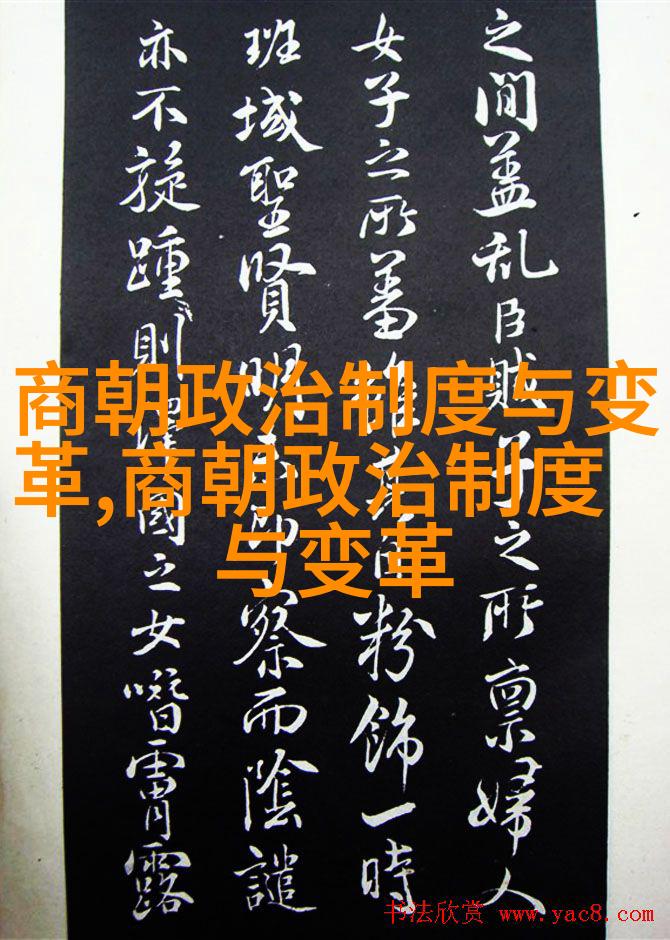 之間盖乱臣賊子之所禀婦人
女子之所蓄粉飾一時
班域聖賢明察而陰譴
亦不旋踵則國之女噆霄露
商朝政治制度与变
革,商朝政治制度
与变革
书法欣赏 www.yac8.com